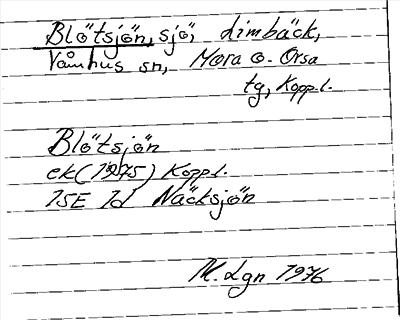 Blötsjön, sjö, Limbäck,
Våmhus sn, Mora o. Orsa
tg, Koppl.
Blötsjön
ek (1975) Koppl.
15E 1d Näcksjön
M. Lgn 1976